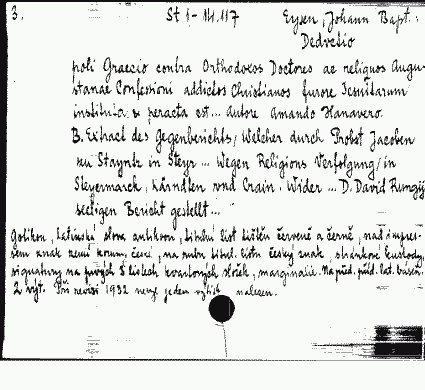 3. St 1-14.117 Eysen, Johann Bapt.:
Dedvesio
poli Graecio contra Orthodoxos Doctores ac reliquos Augu-
stanae Confessioni addictos Christianos furore Iesuitarum
instituta & peracta est... Autore Amando Hanavero.
B. Extract des Gegenberichts, Welcher durch Probst Jacoben
zu Stayntz in Steyr... Wegen Religions Verfolgung, in
Steyermarck, Kärndten vnd Crain. Wider... D. David Rungij
seeligen Bericht gestellt...
Gotikou, latinská slova antikvou, titulní list tištěn červeně a černě, nad impres-
sem znak zemí korun. české, na rubu titul. listu český znak, stránkové kustody,
signatury na prvých 5 listech kvartových složek, marginalie. Na před. příd. lat. báseň.
2 výt. Při revisi 1932 nebyl jeden výtisk nalezen.